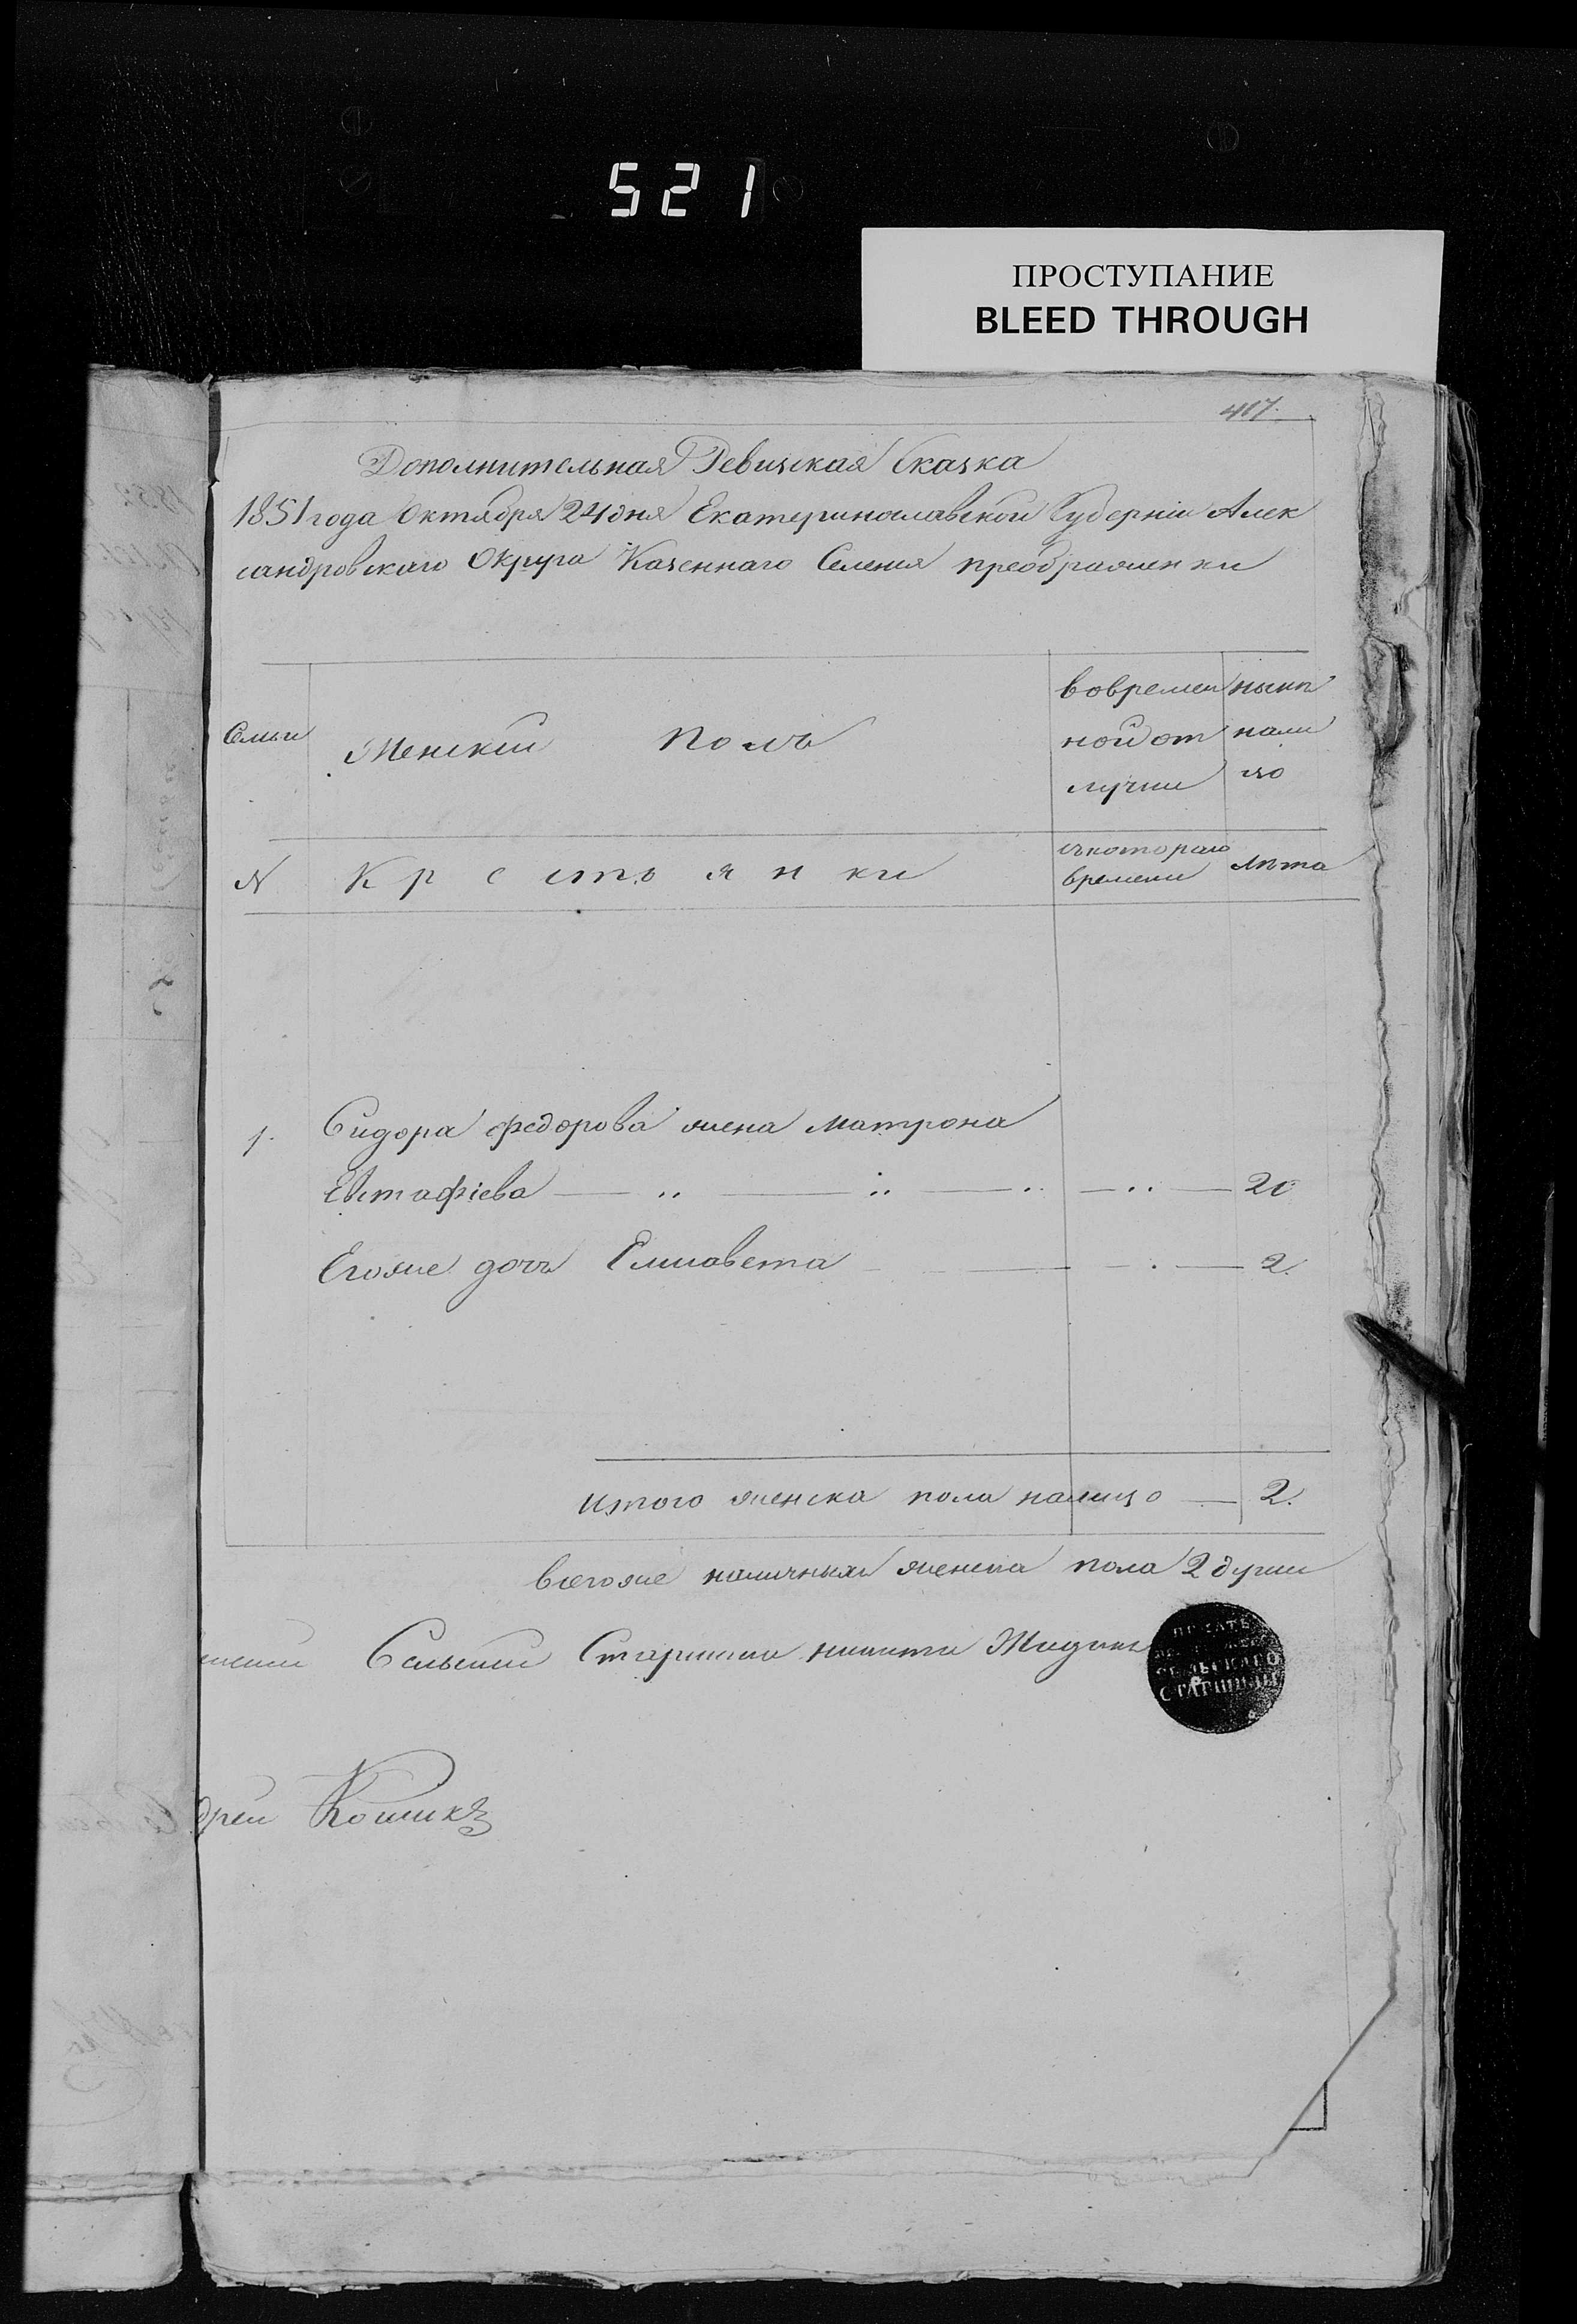 521
ПРОСТУПАНИЕ
BLEED THROUGH
417.
Дополнительная Ревизская Сказка
1851 года Октября 24 дня Екатеринославской Губерніи Алек
сандровскаго Округа Казеннаго Селенія преображенки
Семьи Женскій полъ
вовремен ной от лучки
нынѣ нали цо
N Крестьянки
съкотораго времени
лѣта
1. Сидора федорова жена матрона
Евтафіева 20
Егоже дочь Елисавета 2.
итого женска пола налицо 2.
всегоже наличныхъ женска пола 2 души
Сельский Старшина никита
ПЕЧАТЬ
СЕЛЬСКАГО
СТАРШИНЫ
дрей Кошикъ